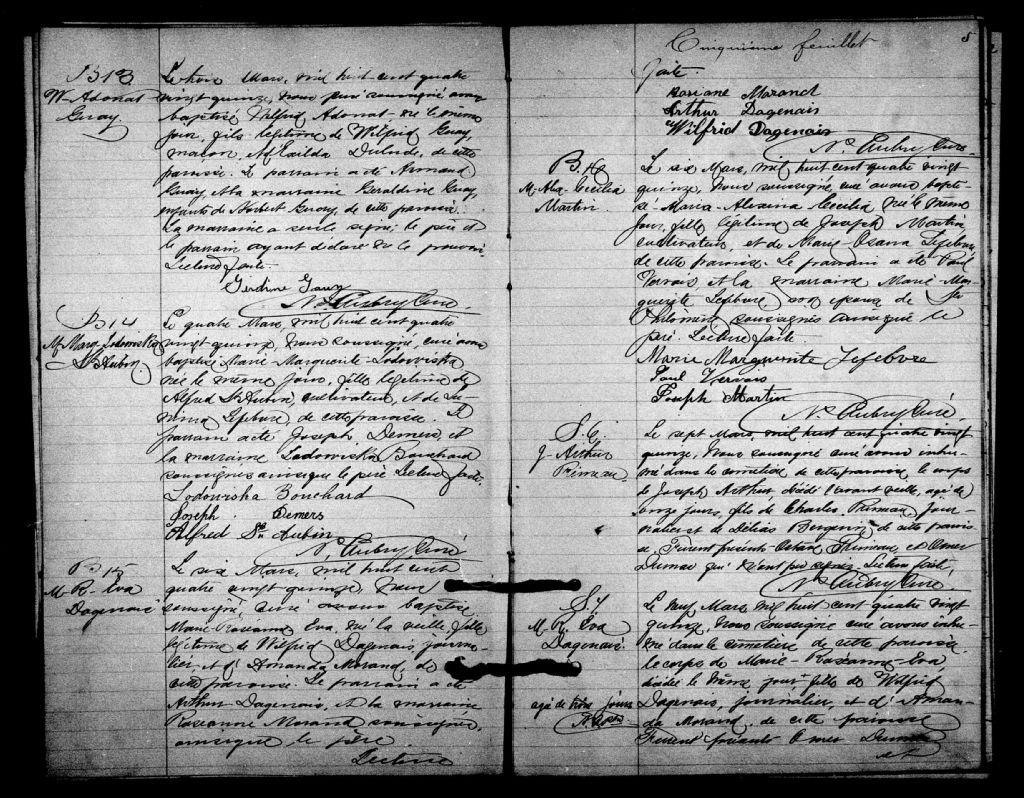 B 13
W- Adonat
Guay.
Le trois Mars, mil huit cent quatre
vingt quinze, nous curé soussigné avons
baptisé Wilfrid Adonat né le même
jour, fils légitime de Wilfrid Guay,
maçon, et d'Exilda Dulude, de cette
paroisse. Le parrain a été Armand
Guay, et la marraine Géraldine Guay,
enfants de Norbert Guay, de cette paroisse.
La marraine a seule signé; le père et
le parrain ayant déclaré ne le pouvoir.
Lecture faite.
Gerdine Gauy
Ns. Aubry Curé
B 14
M. Marg. Lodowiska
St Aubin
Le quatre Mars, mil huit cent quatre
vingt quinze, nous soussigné, curé avons
baptisé Marie Marguerite Lodowiska
née le même jour, fille légitime de
Alfred St Aubin, cultivateur, et de
Lefebvre, de cette paroisse. Le
parrain a été Joseph Demers, et
la marraine Lodowiska Bouchard
soussignés ainsi que le père. Lecture faite.
Lodowisha Bouchard
Joseph Demers
Alfred St. Aubin
Ns. Aubry Curé
B 15
M. R- Eva
Dagenais
Le six Mars, mil huit cent
quatre vingt quinze, nous
soussigné, curé avons baptisé
Marie Roseanna Eva, née la veille, fille
légitime de Wilfrid Dagenais, journa-
lier, et d'Amanda Morand, de
cette paroisse. Le parrain a été
Arthur Dagenais, et la marraine
Roseanne Morand soussignés,
ainsi que le père.
Lecture
Cinquième feuillet
5
faite.
Roseane Morand
Arthur Dagenais
Wilfrid Dagenais
Ns. Aubry Curé.
B. 16
M. Alex- Cecilia
Martin
Le six Mars, mil huit cent quatre vingt
quinze, nous soussigné, curé avons bapti-
sé Maria- Alexina Cecilia née le même
jour, fille légitime de Joseph Martin
cultivateur, et de Marie Osana Lefebvre
de cette paroisse. Le parrain a été Paul
Vervais et la marraine Marie Mar-
guerite Lefebvre son épouse de St
Philomène, soussignés ainsi que le
père. Lecture faite.
Marie Marguerite Lefebvre
Paul Vervais
Joseph Martin
Ns. Aubry Curé
S. 6.
J- Arthur
Primeau
Le sept Mars, mil huit cent quatre vingt
quinze, nous soussigné curé avons inhu-
mé dans le cimetière de cette paroisse, le corps
de Joseph Arthur décédé l'avant veille, agé de
onze jours, fils de Charles Primeau, jour-
nalier et de Délias Bergevin de cette parois-
se. Furent présents Primeau, et Omer
Dumas qui n'ont pu signer. Lecture faite,
Ns. Aubry Curé
S. 7
M. R. Eva
Dagenais.
agé de trois jours
Le neuf Mars, mil huit cent quatre vingt
quinze, nous soussigné curé avons inhu-
mé dans le cimetière de cette paroisse
le corps de Marie- Roseanna- Eva
décédée le même jour fille de Wilfrid
Dagenais, journalier, et d'Aman-
da Morand, de cette paroisse
Furent présents Omer Dumas
et